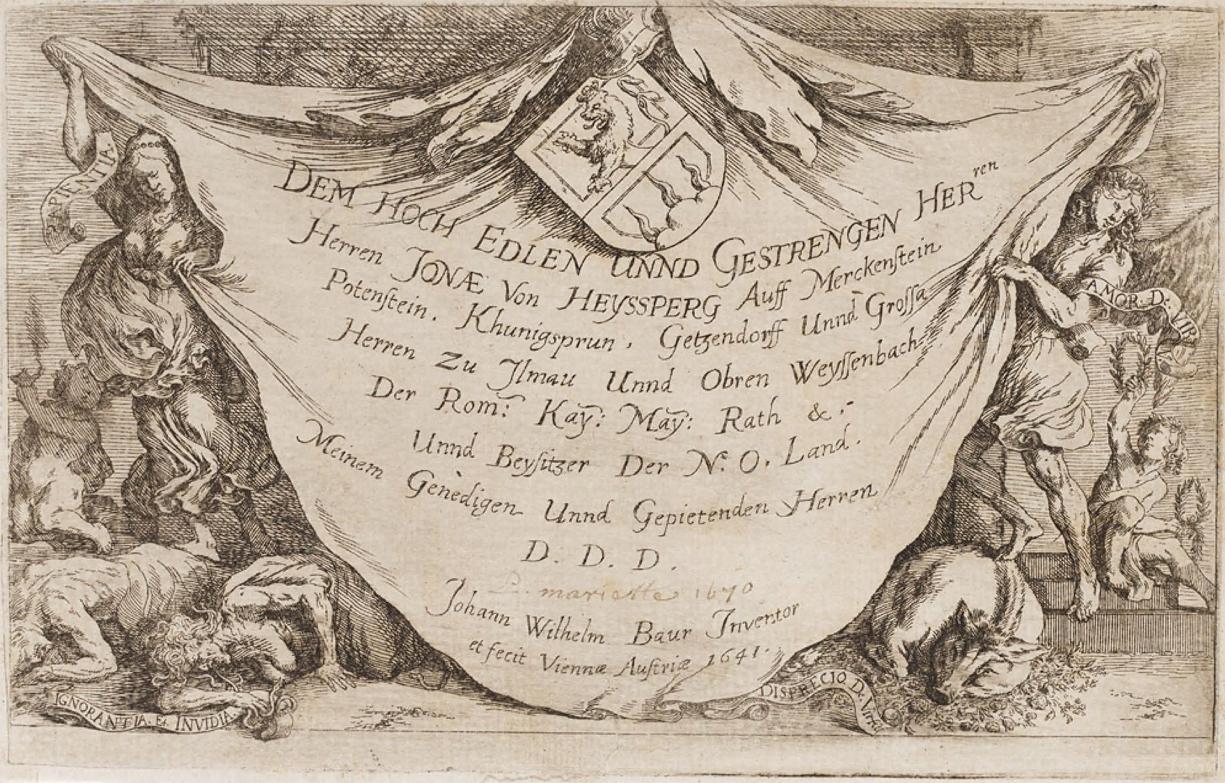 SAPIENTIA
DEM HOCH EDLEN UNND GESTRENGEN HERren
Herren JONÆ Von HEYSSPERG Auff Merckenstein
Potenstein, Khunigsprun, Getzendorff Unnd Grossa
Herren Zu Ilmau Unnd Obren Weyssenbach
Der Rom: Kay: May: Rath &:
Unnd Beysitzer Der N. O. Land.
Meinem Genedigen Unnd Gepietenden Herren
D. D. D.
P. mariette 1670
Johann Wilhelm Baur Inventor
et fecit Viennæ Austriæ 1641.
AMOR. D. VIR
IGNORANTIA Et INVIDIA
DISPRECIO D. Virtù